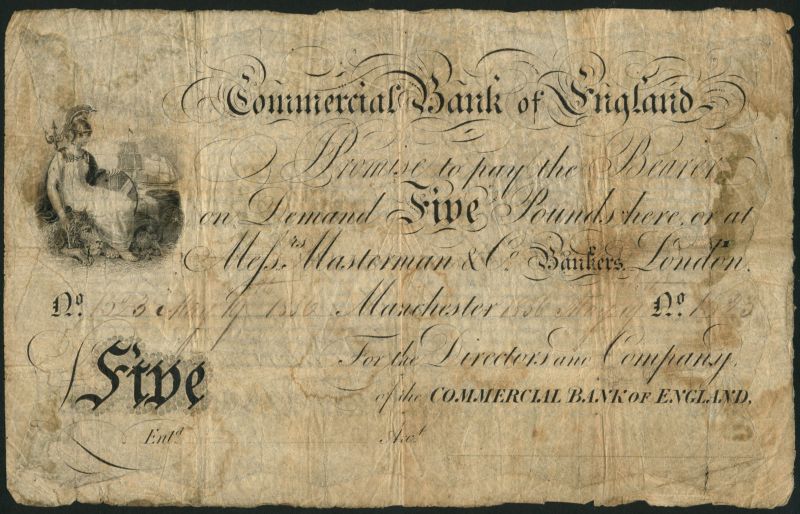 Commercial Bank of England
Promise to pay the Bearer
on Demand Five Pounds here, or at
Messrs Masterman & Co. Bankers, London.
No. 1523 May 19th 1836 Manchester 1836 May 19th No. 1523
For the Directors and Company,
Five of the COMMERCIAL BANK OF ENGLAND,
Entd. Acct.